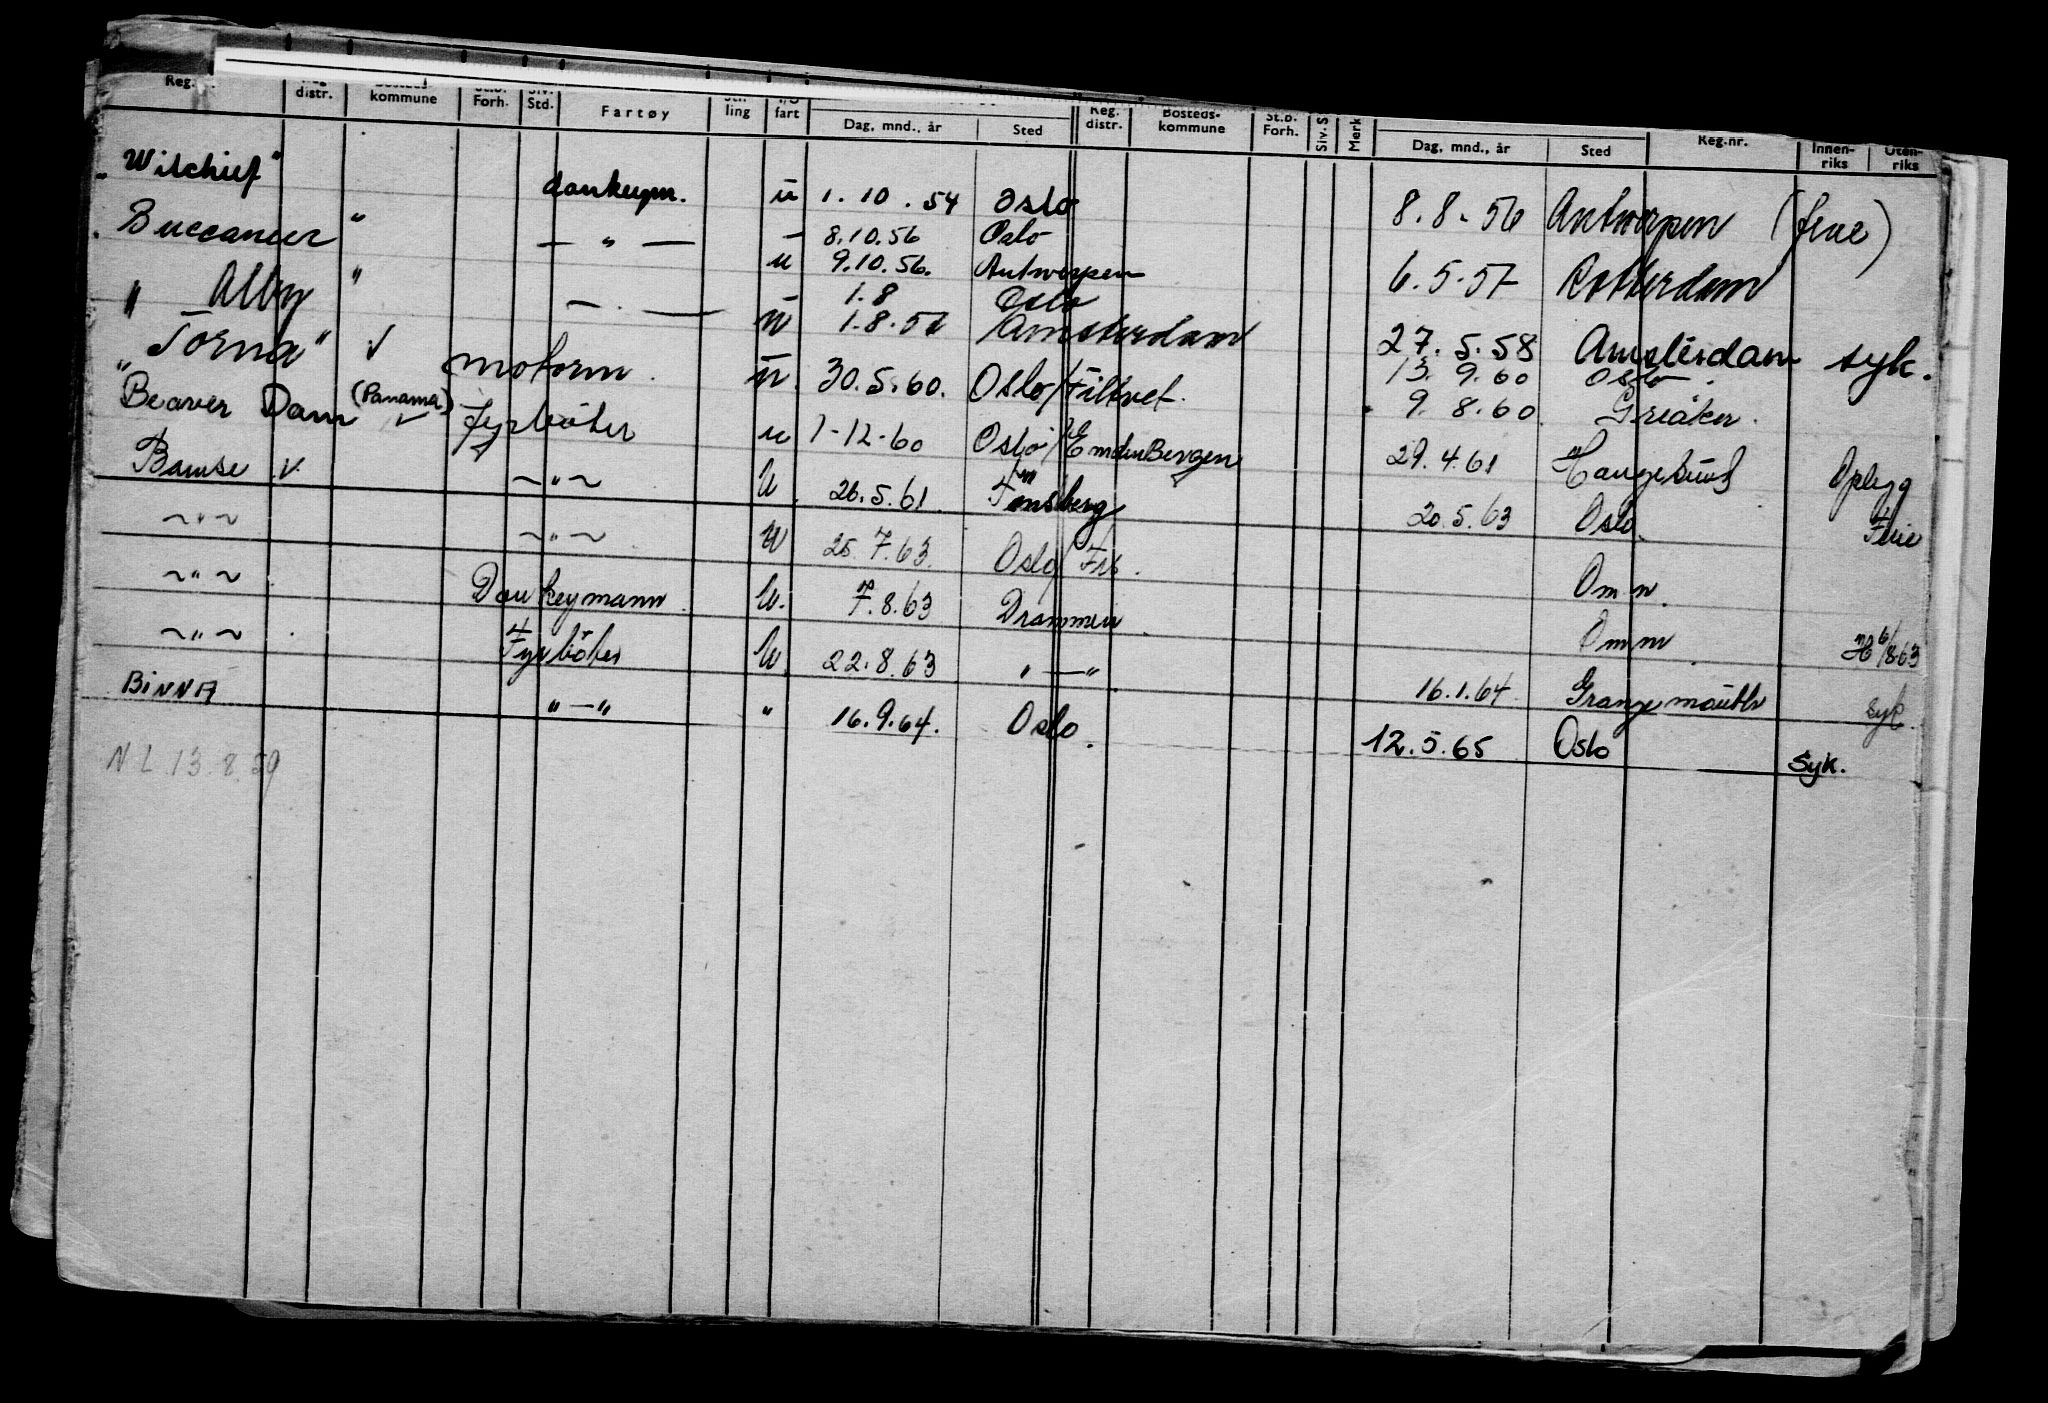 Reg. distr. kommune Forh. Std. Fartøy ling fart Dag, mnd., år Sted Reg. distr. Bosteds-kommune St.b. Forh. Siv. S Merk Dag, mnd., år Sted Reg.nr. Innen-riks Uten-riks
"Wilchief" donkeym. u 1.10.54 Oslo 8.8.56 Antwerpen (ferie)
"Buccaneer" — " — 8.10.56 Oslo
u 9.10.56. Antwerpen 6.5.57 Rotterdam
" Alby " — . — 1.8 Oslo
u 1.8.57 Amsterdam 27.5.58 Amsterdam syk.
"Torna" √ motorm. u. 30.5.60. Oslo/Filtvet. 13.9.60 Oslo.
9.8.60 Greåker.
Beaver Dam (Panama) √ fyrbøter u 1-12-60 Oslo/Emden Bergen 29.4.61 Haugesund Oplegg
Bamse v. ~"~ U 26.5.61. Tønsberg 20.5.63 Oslo. Ferie
~"~ ~"~ U 25.7.63. Oslo/Frb. Omm.
~"~ Donkeymann U. 7.8.63 Drammen Omm 6/8 63
~"~ Fyrbøter U. 22.8.63 "—" 16.1.64. Grangemouth syk.
BINNA "—" " 16.9.64. Oslo. 12.5.65 Oslo Syk.
N.L. 13.8.59